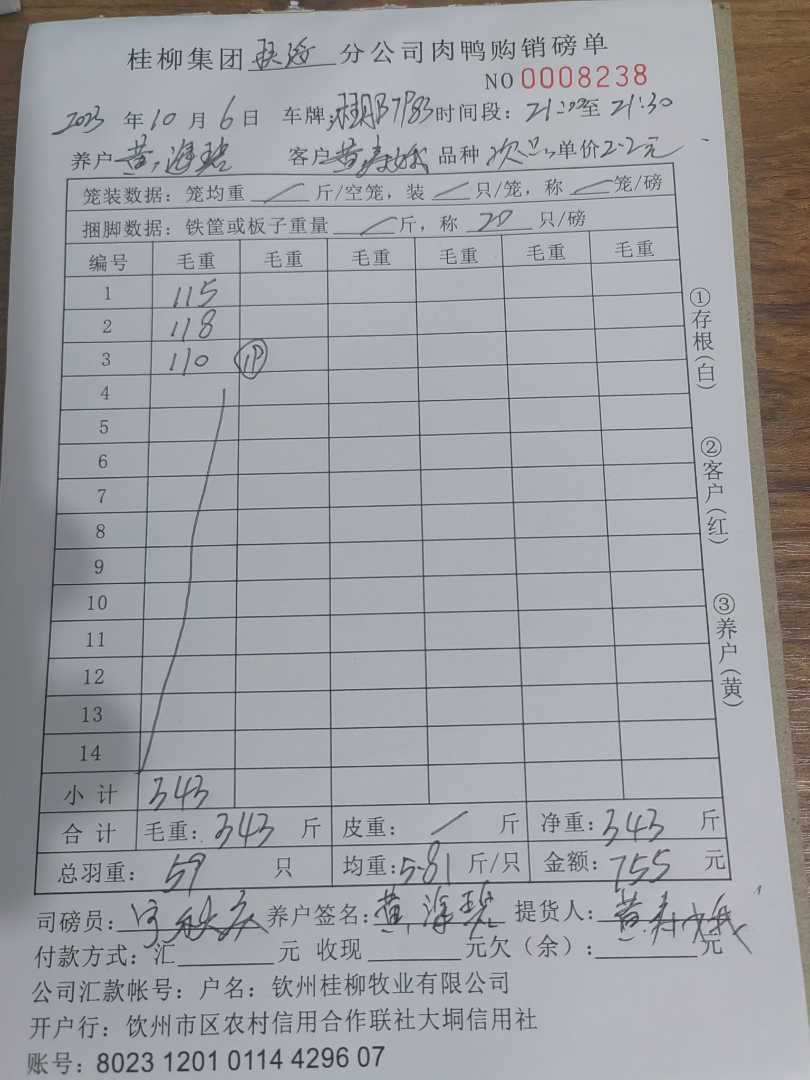 桂柳集团 钦海 分公司肉鸭购销磅单
NO 0008238
2023 年 10 月 6 日 车牌: 桂 7P83 时间段: 21:00至 21:30
养户 黄海 客户 黄寿 品种 次品 单价 2.2元
笼装数据: 笼均重 / 斤/空笼, 装 / 只/笼, 称 / 笼/磅
捆脚数据: 铁筐或板子重量 / 斤, 称 20 只/磅
编号 毛重 毛重 毛重 毛重 毛重 毛重
1 115
2 118
3 110 19
4
5
6
7
8
9
10
11
12
13
14
小 计 343
合 计 毛重: 343 斤 皮重: / 斤 净重: 343 斤
总羽重: 59 只 均重: 5.81 斤/只 金额: 755 元
司磅员: 养户签名: 黄海 提货人: 黄寿
付款方式: 汇 元 收现 元欠（余）: 元
公司汇款帐号: 户名: 钦州桂柳牧业有限公司
开户行: 钦州市区农村信用合作联社大垌信用社
账号: 8023 1201 0114 4296 07
①存根(白)
②客户(红)
③养户(黄)